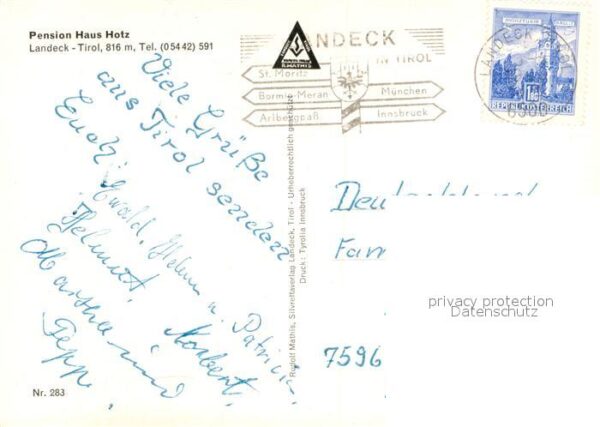 Pension Haus Hotz
Landeck - Tirol, 816 m, Tel. (05442) 591
Viele Grüße
aus Tirol senden
Euch
Ewald, Helmut u. Patricia,
Helmut, Norbert,
Martha und
Pepp
Nr. 283
Rudolf Mathis, Silvrettaverlag Landeck, Tirol - Urheberrechtlich geschützt
Druck: Tyrolia Innsbruck
R. MATHIS
LANDECK
IN TIROL
St. Moritz
Bormio-Meran
München
Arlbergpaß
Innsbruck
LANDECK
6500
1.80
REPUBLIK ÖSTERREICH
Fam
privacy protection
Datenschutz
7596